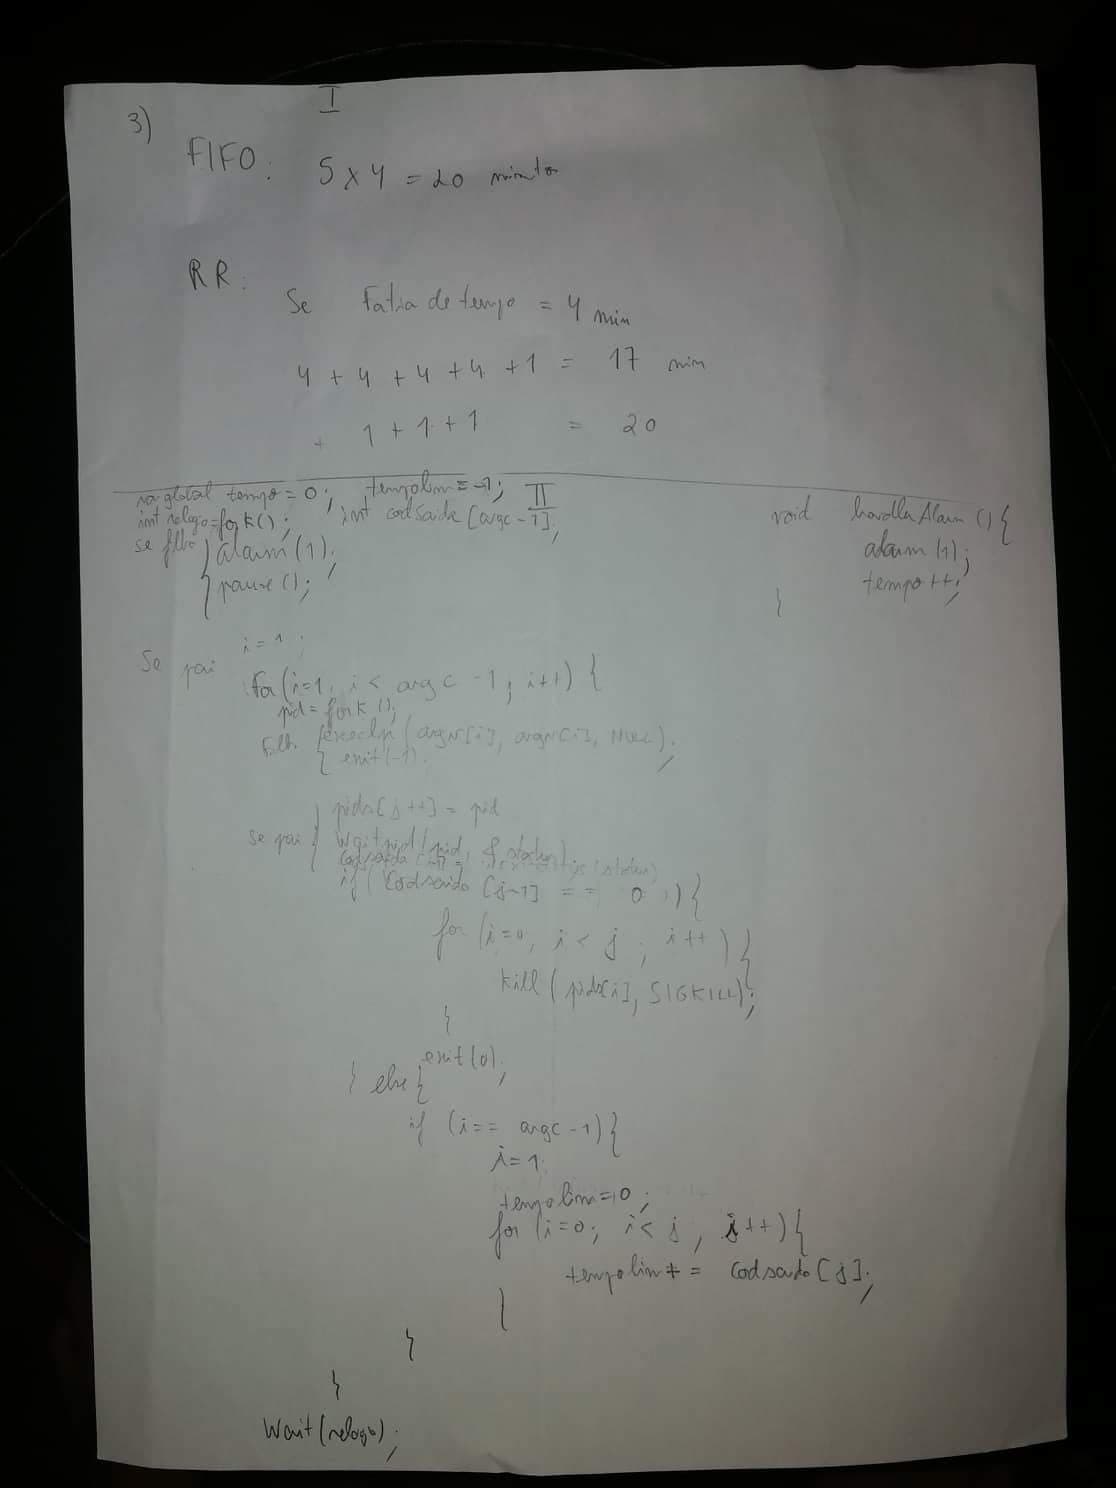 I
3)
FIFO: 5 x 4 = 20 minutos
RR:
Se Fatia de tempo = 4 min
4 + 4 + 4 + 4 + 1 = 17 min
+ 1 + 1 + 1 = 20
II
va global tempo = 0; tempolim = -1;
int relogio=fork(); int codsaida [argc - 1];
se filho { alarm(1);
pause();
void handlerAlarm () {
alarm (1);
tempo ++;
}
Se pai i = 1;
for (i=1, i < argc -1; i++) {
pid = fork ();
Filho { execlp (argv[i], argv[i], NULL);
exit(-1).
se pai { pids[j++] = pid
waitpid (pid, & status)
codsaida (status)
if ( Codsaida [j-1] == 0 ) {
for (i=0, i < j ; i++ ) {
kill ( pids[i], SIGKILL);
}
exit(0);
} else {
if (i == argc -1) {
i = 1
tempolim = 0;
for (i=0; i < j , j++) {
tempolim + = Codsaida [j];
}
}
}
Wait(relogio);